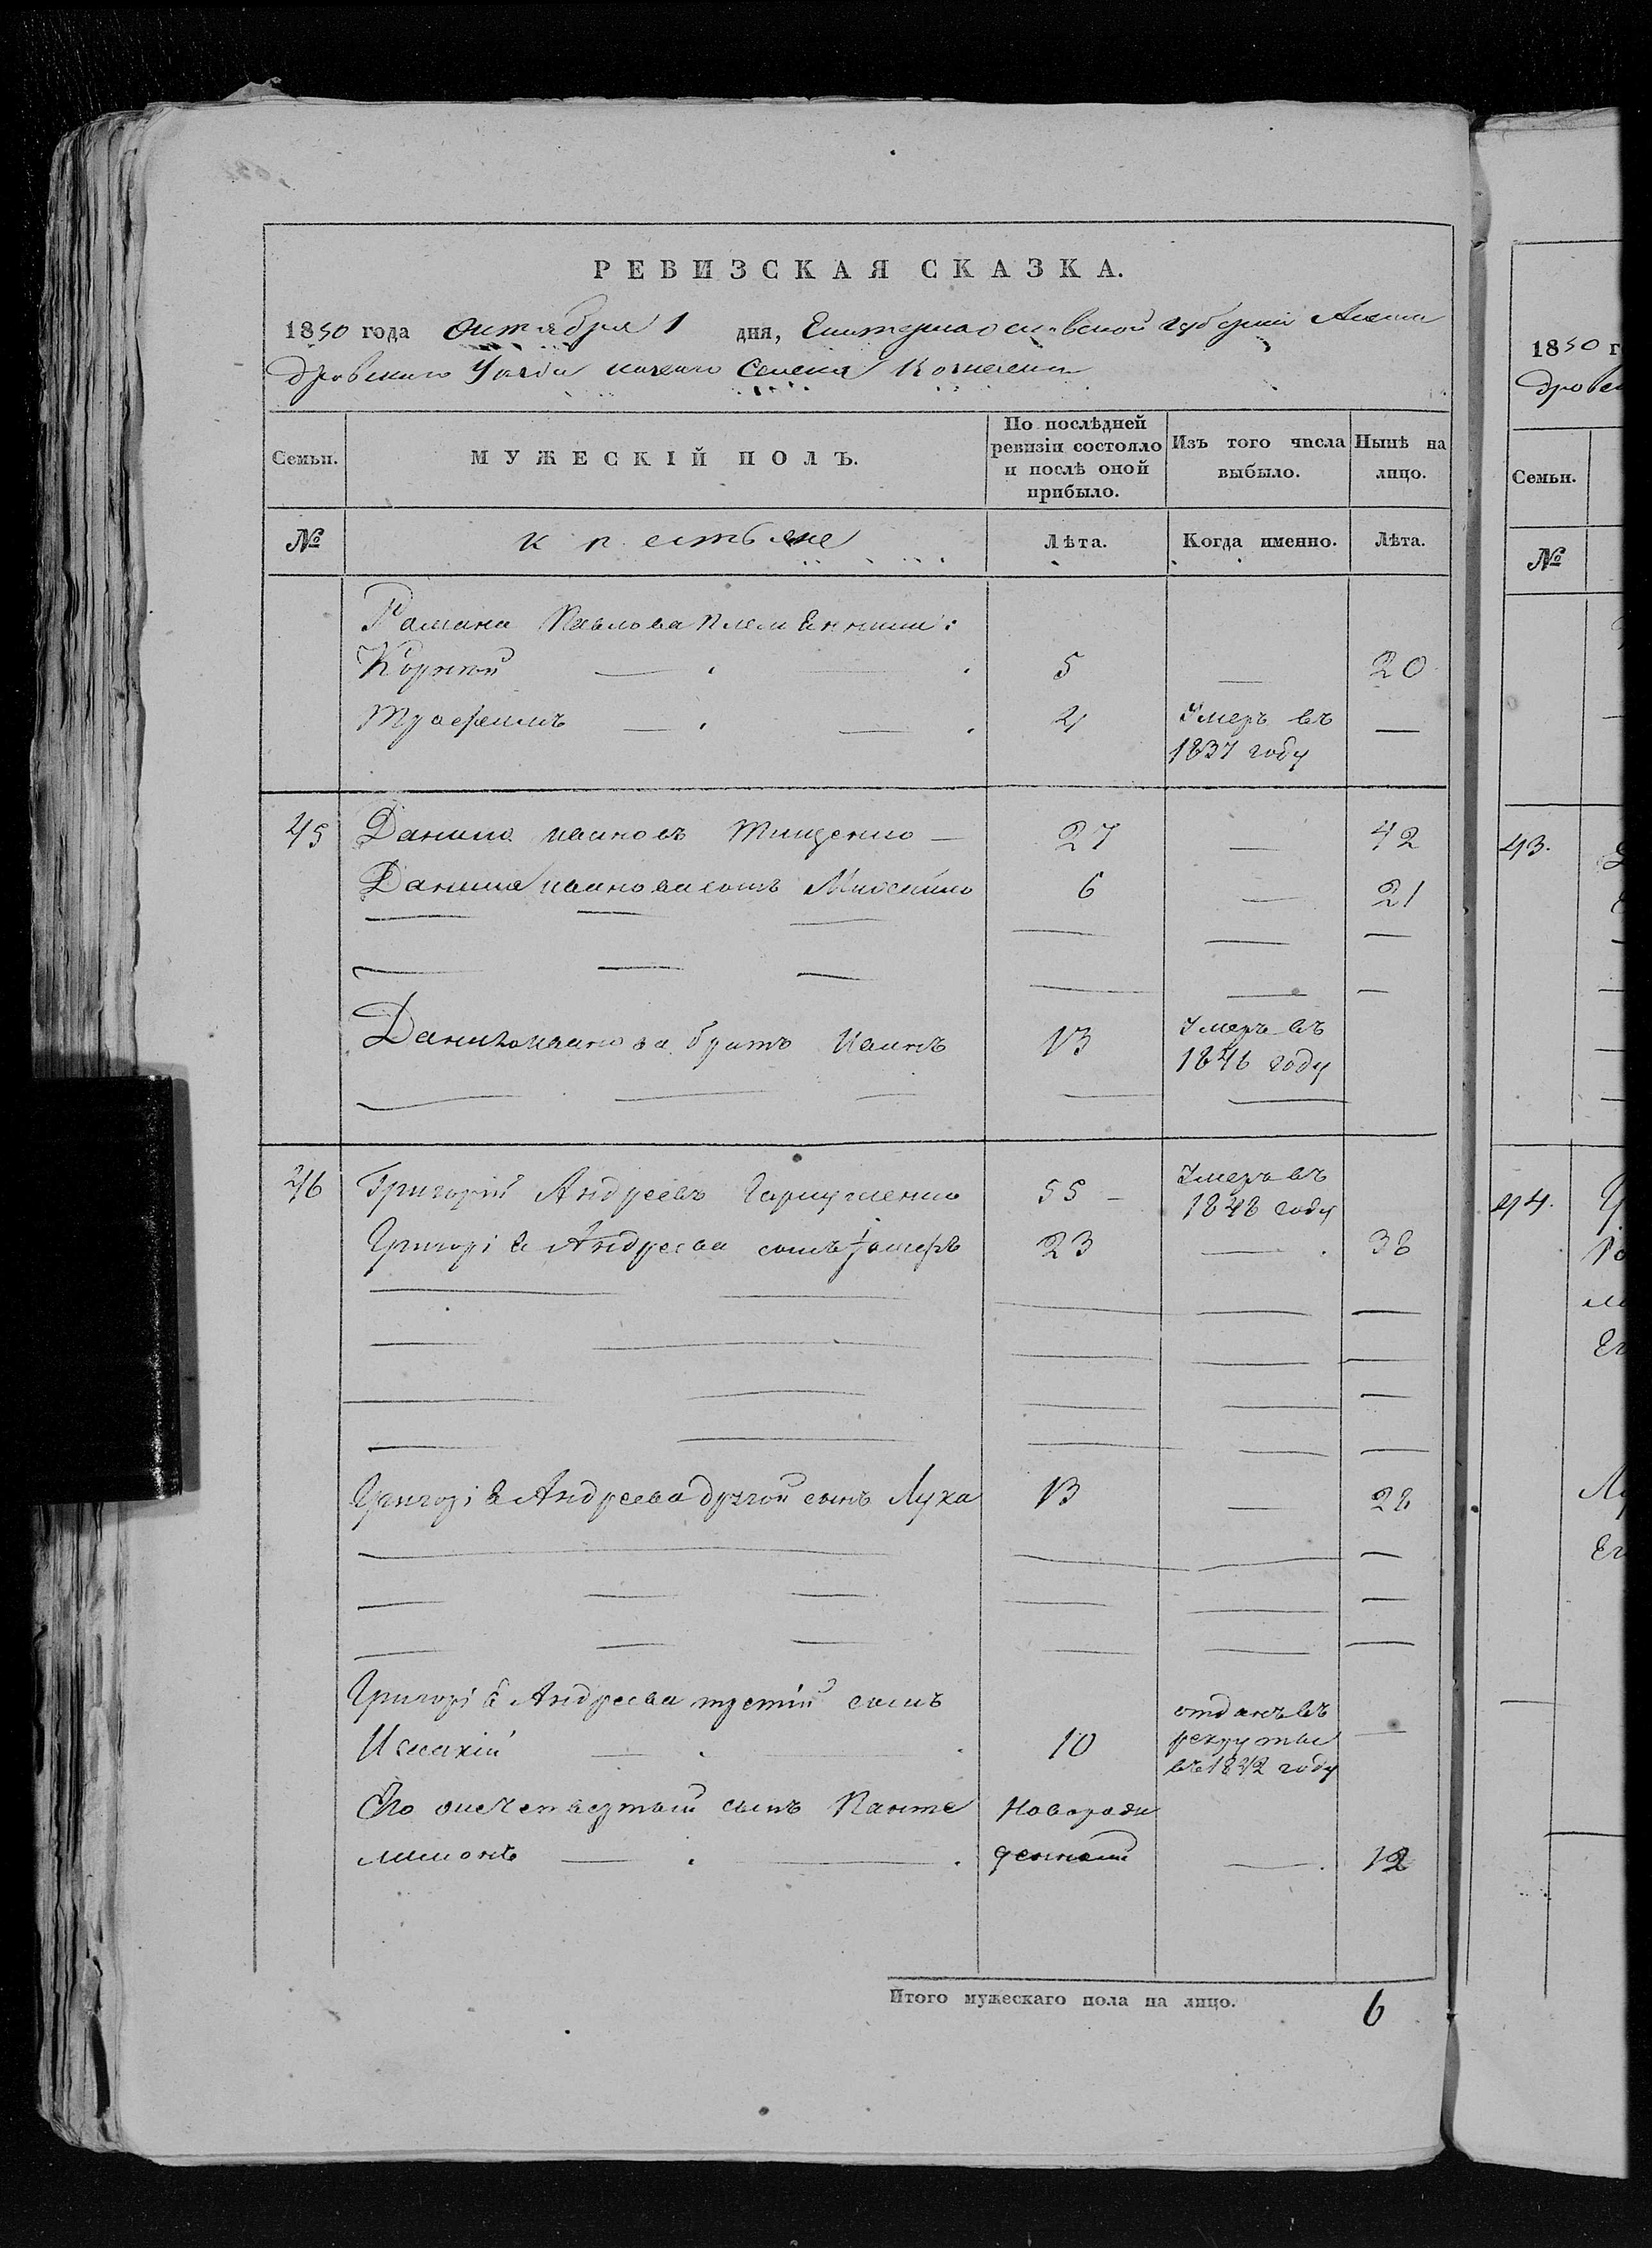 РЕВИЗСКАЯ СКАЗКА.
1850 года Октября 1 дня, Екатеринославской губернiи Алексан
дровскаго Уезда казенаго Селения
Семьи. МУЖЕСКIЙ ПОЛЪ. По послѣдней ревизiи состояло и послѣ оной прибыло. Изъ того числа выбыло. Нынѣ на лицо.
№ крестьяне Лѣта. Когда именно. Лѣта.
Романа Павлова племѣнники:
Корнѣй — 5 — 20
Трофимъ — 4 Умеръ въ 1837 году —
45 Данило Ивановъ Тищенко — 27 — 42
Данила Иванова сынъ Михайло 6 — 21
Данила Иванова братъ Иванъ 13 Умеръ въ 1846 году
46 Григорiй Андреевъ 55 — Умеръ въ 1848 году
Григорiя Андреева сынъ 23 — 38
Григорiя Андреева другой сынъ Лука 13 — 28
Григорiя Андреева третiй сынъ
10 отданъ въ рекруты въ 1842 году —
Его же четвертый сынъ Панте
лимонъ — Новорож
денный — 12
Итого мужескаго пола на лицо. 6
1850 г
дровск
Семьи.
№
43.
44.